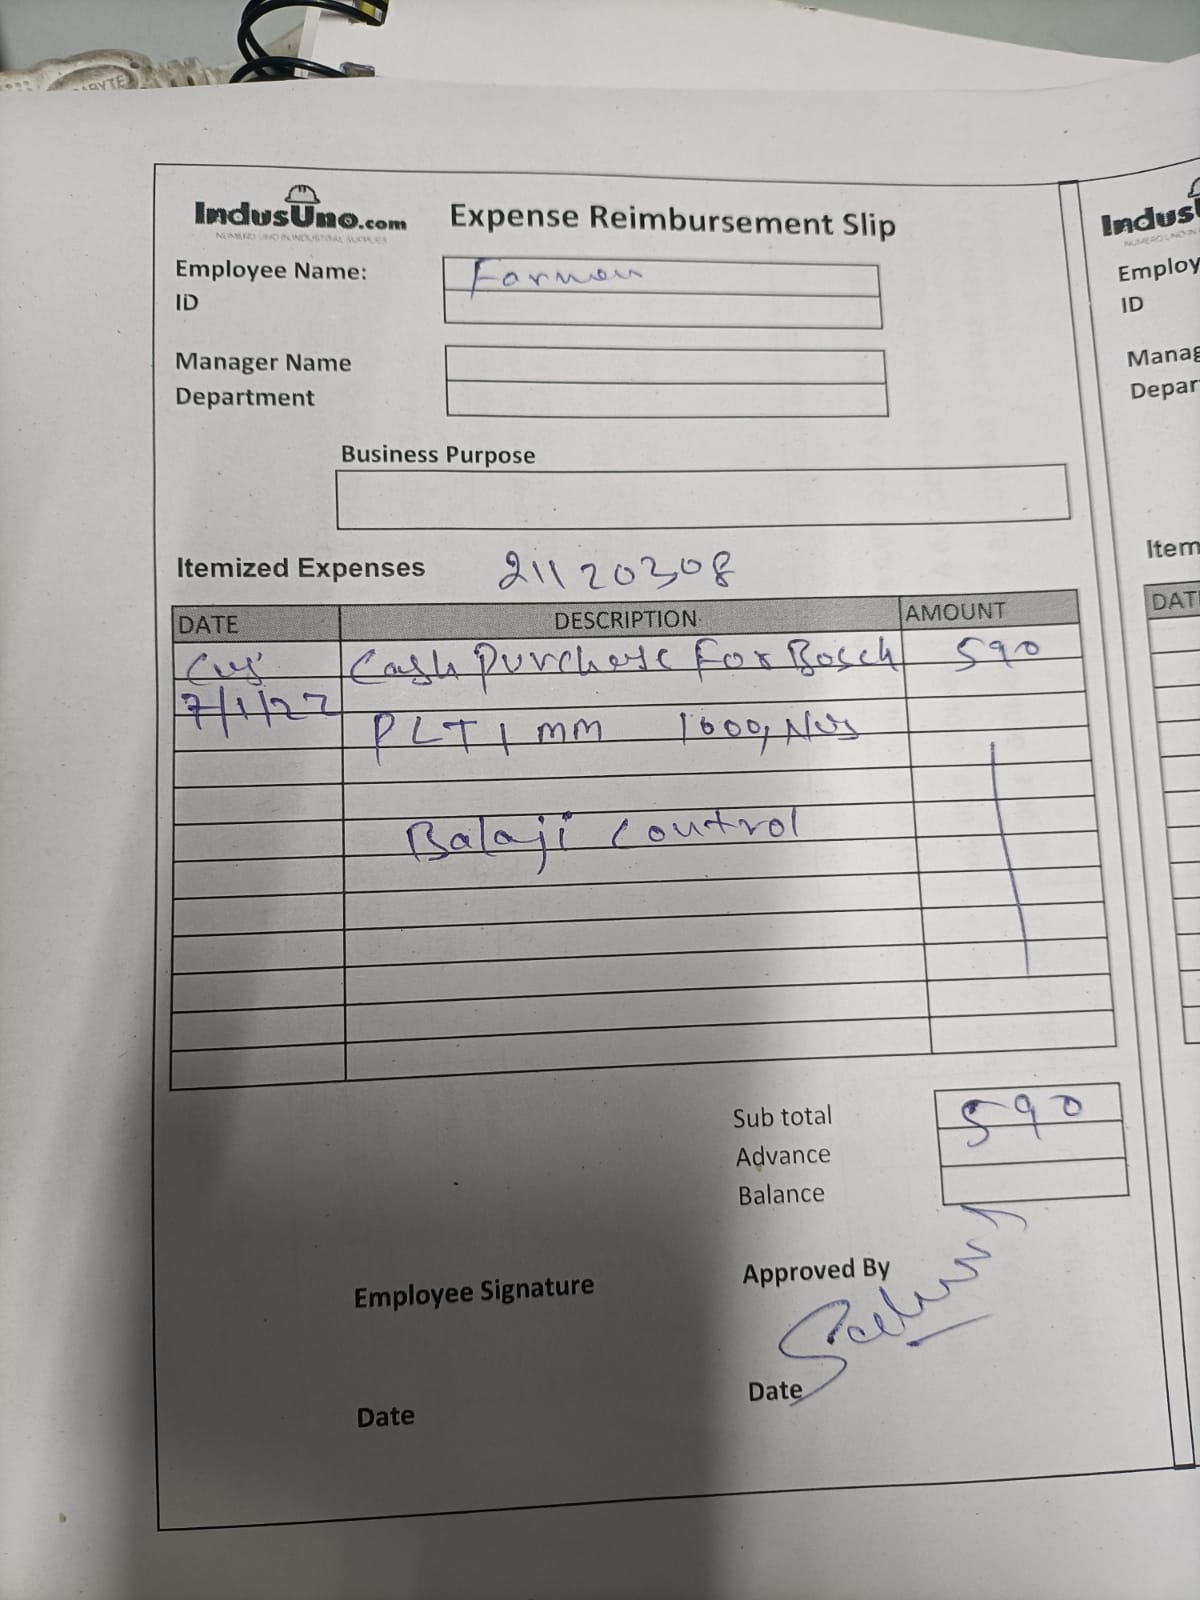 GABYTE
IndusUno.com Expense Reimbursement Slip
NUMERO UNO IN INDUSTRIAL SUPPLIES
Employee Name: Farman
ID
Manager Name
Department
Business Purpose
Itemized Expenses 21120308
DATE DESCRIPTION AMOUNT
Cash Purchase For Bosch 590
7/1/22
PLT 1 mm 1000, Nos
Balaji Control
Sub total 590
Advance
Balance
Employee Signature
Approved By
Date
Date
Indus
NUMERO UNO IN
Employ
ID
Manag
Depar
Item
DAT